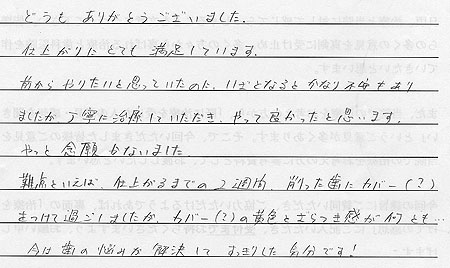 どうも ありがとうございました.
仕上がりに とても 満足しています.
前から やりたいと思っていたのに、いざとなると かなり 不安もあり
ましたが 丁寧に治療していただき、やって 良かったと思います.
やっと 念願 かないました
難点といえば、仕上がるまでの 2週間、削った歯にカバー(?)
をつけて過ごしましたが、カバー(?)の黄色とざらつき感が何とも…
今は歯の悩みが解決して すっきりした気分です!